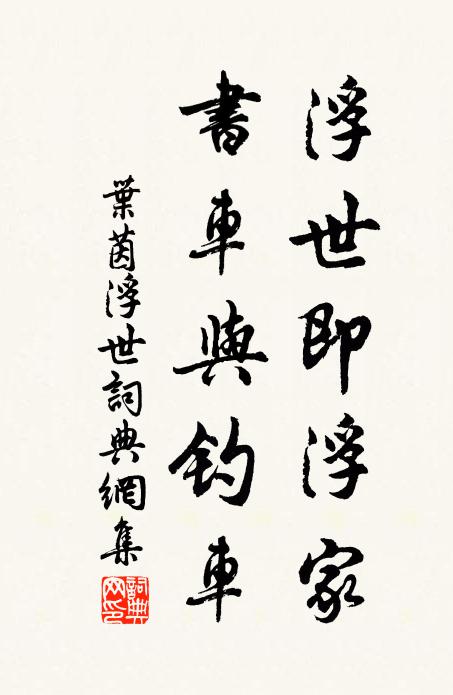 浮世即浮家
書車與釣車
葉茵浮世詞典網集
詞典网印